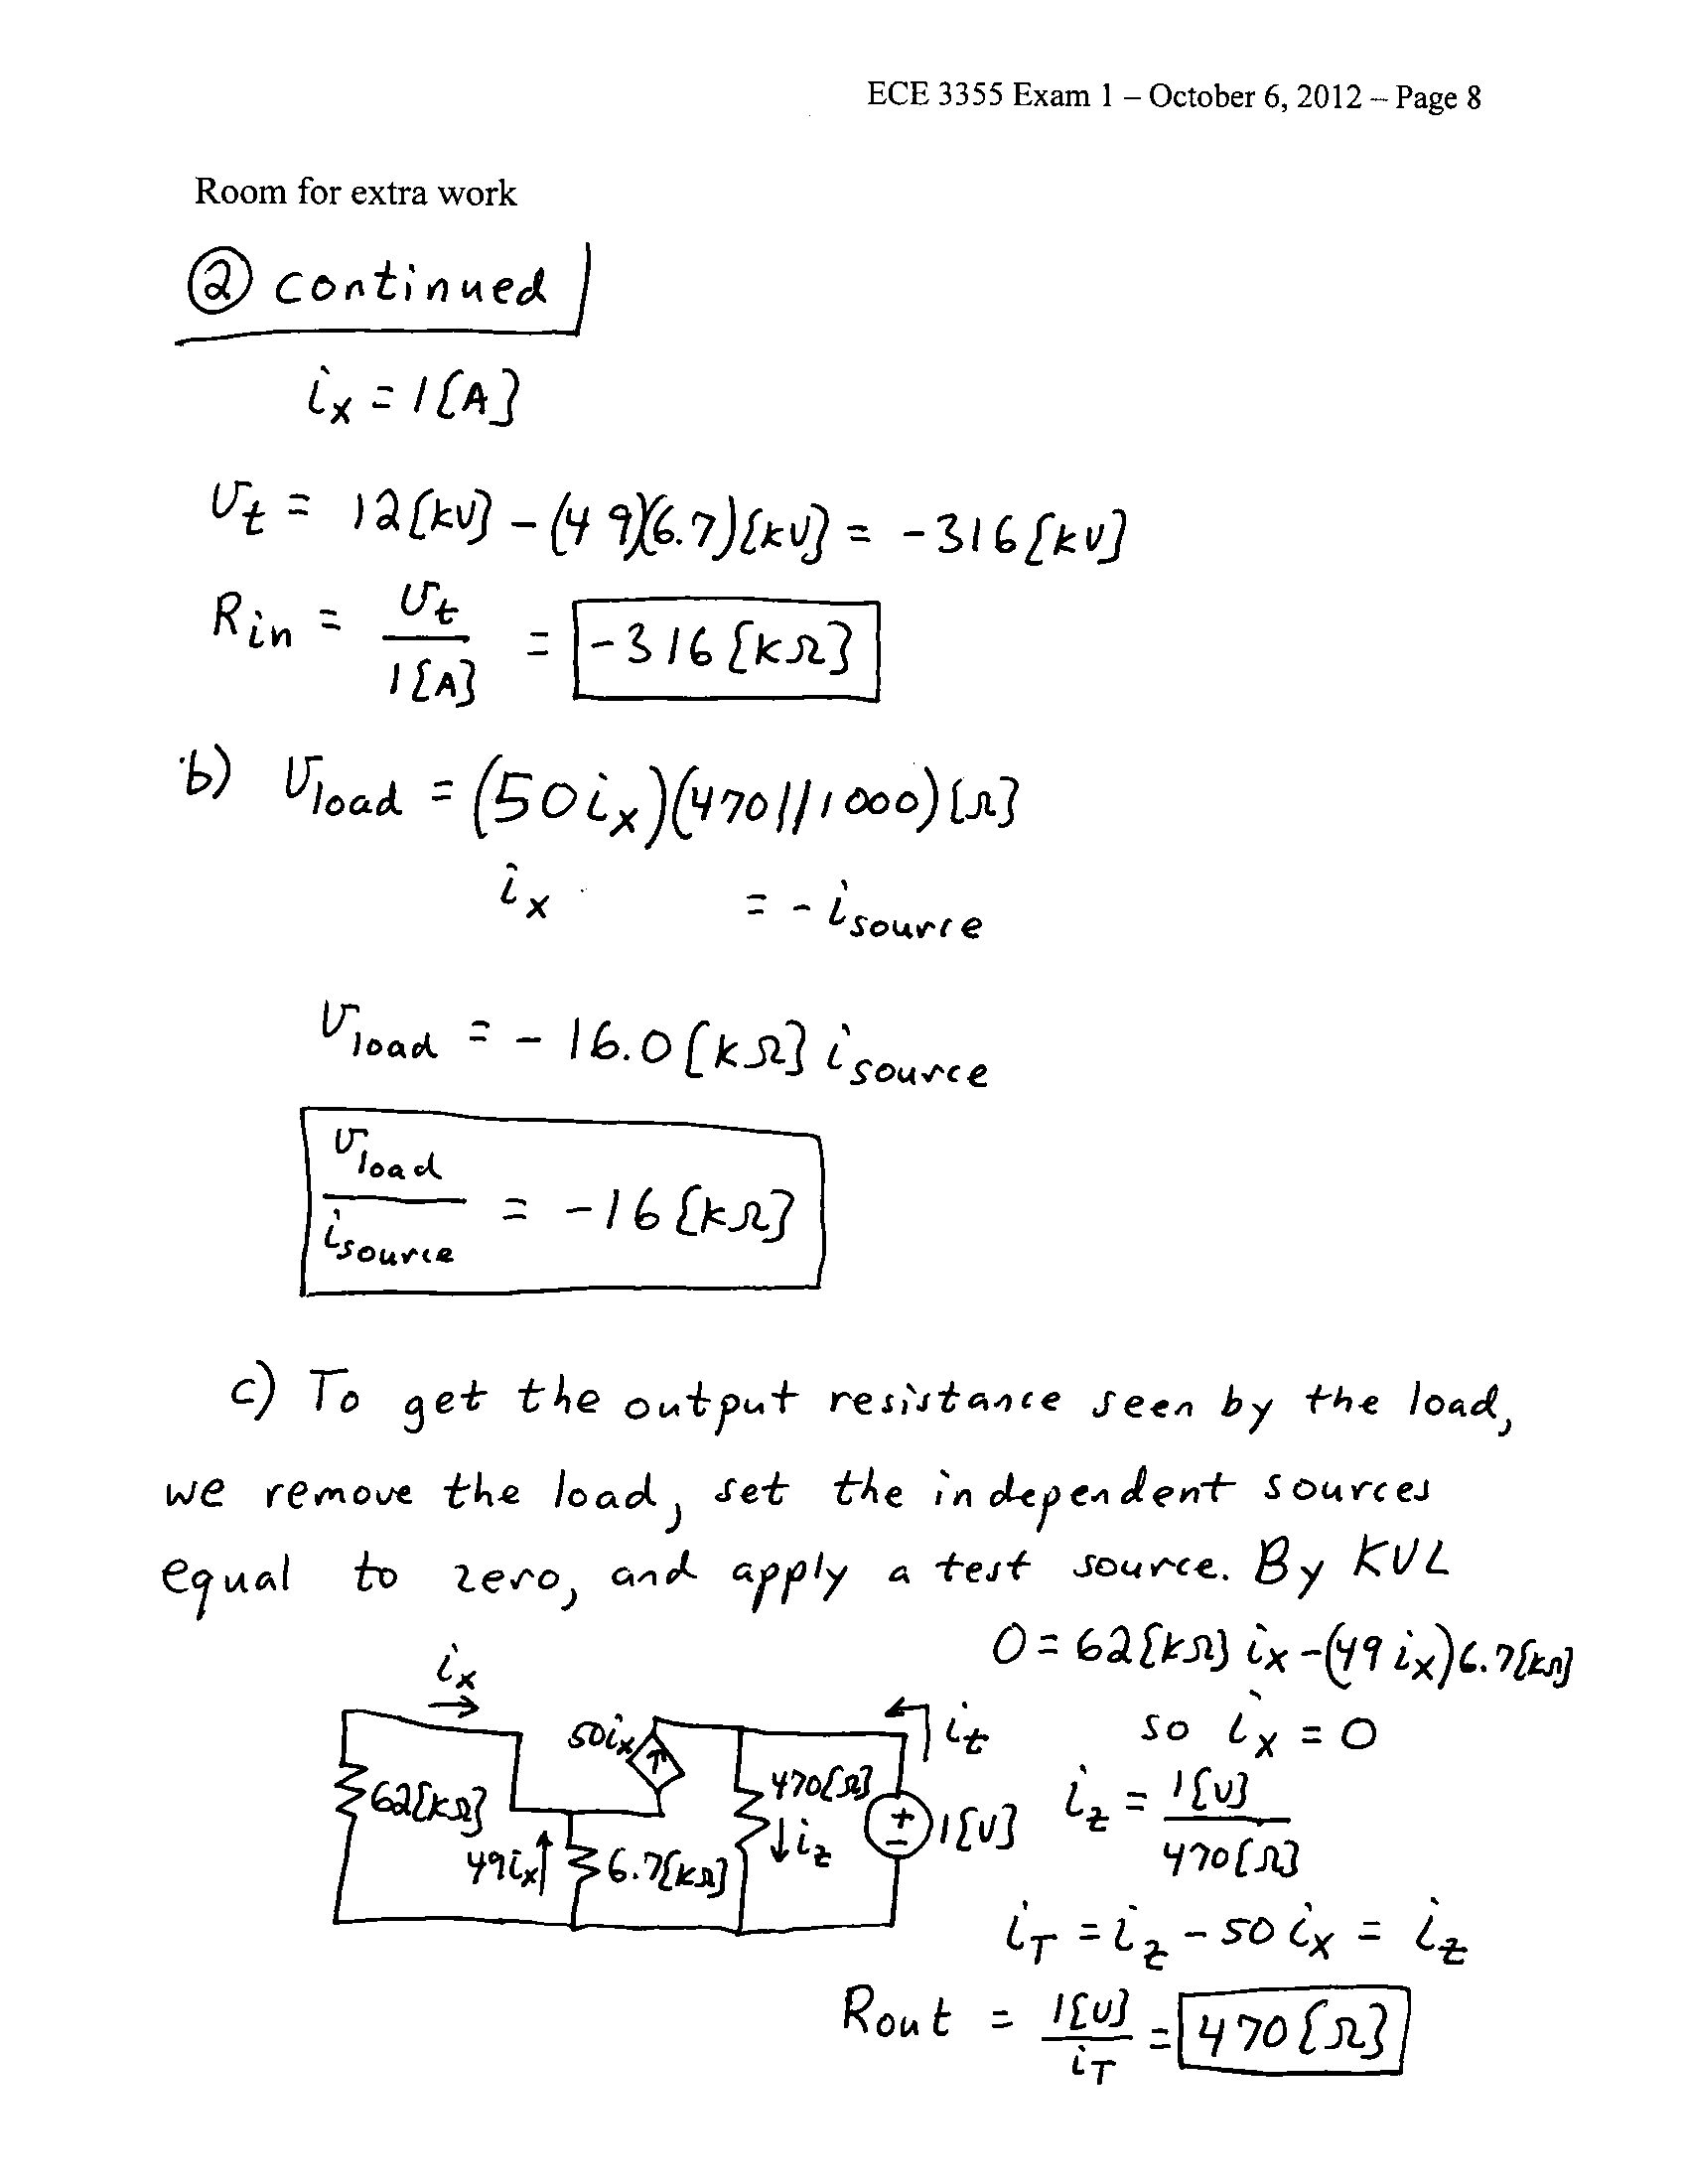 ECE 3355 Exam 1 – October 6, 2012 – Page 8
Room for extra work
② continued
i_x = 1[A]
v_t = 12[kV] - (49)(6.7)[kV] = -316[kV]
R_in = v_t / 1[A] = -316[kΩ]
b) v_load = (50i_x)(470||1000)[Ω]
i_x = -i_source
v_load = -16.0[kΩ] i_source
v_load / i_source = -16[kΩ]
c) To get the output resistance seen by the load,
we remove the load, set the independent sources
equal to zero, and apply a test source. By KVL
0 = 62[kΩ] i_x - (49 i_x)6.7[kΩ]
so i_x = 0
i_x
50i_x
i_t
62[kΩ]
470[Ω]
1[V]
49i_x
6.7[kΩ]
i_z
i_z = 1[V] / 470[Ω]
i_T = i_z - 50 i_x = i_z
R_out = 1[V] / i_T = 470[Ω]